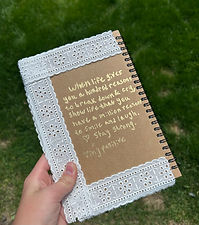 When life gives
you a hundred reasons
to break down & cry,
show life that you
have a million reasons
to smile and laugh,
♡ Stay strong.